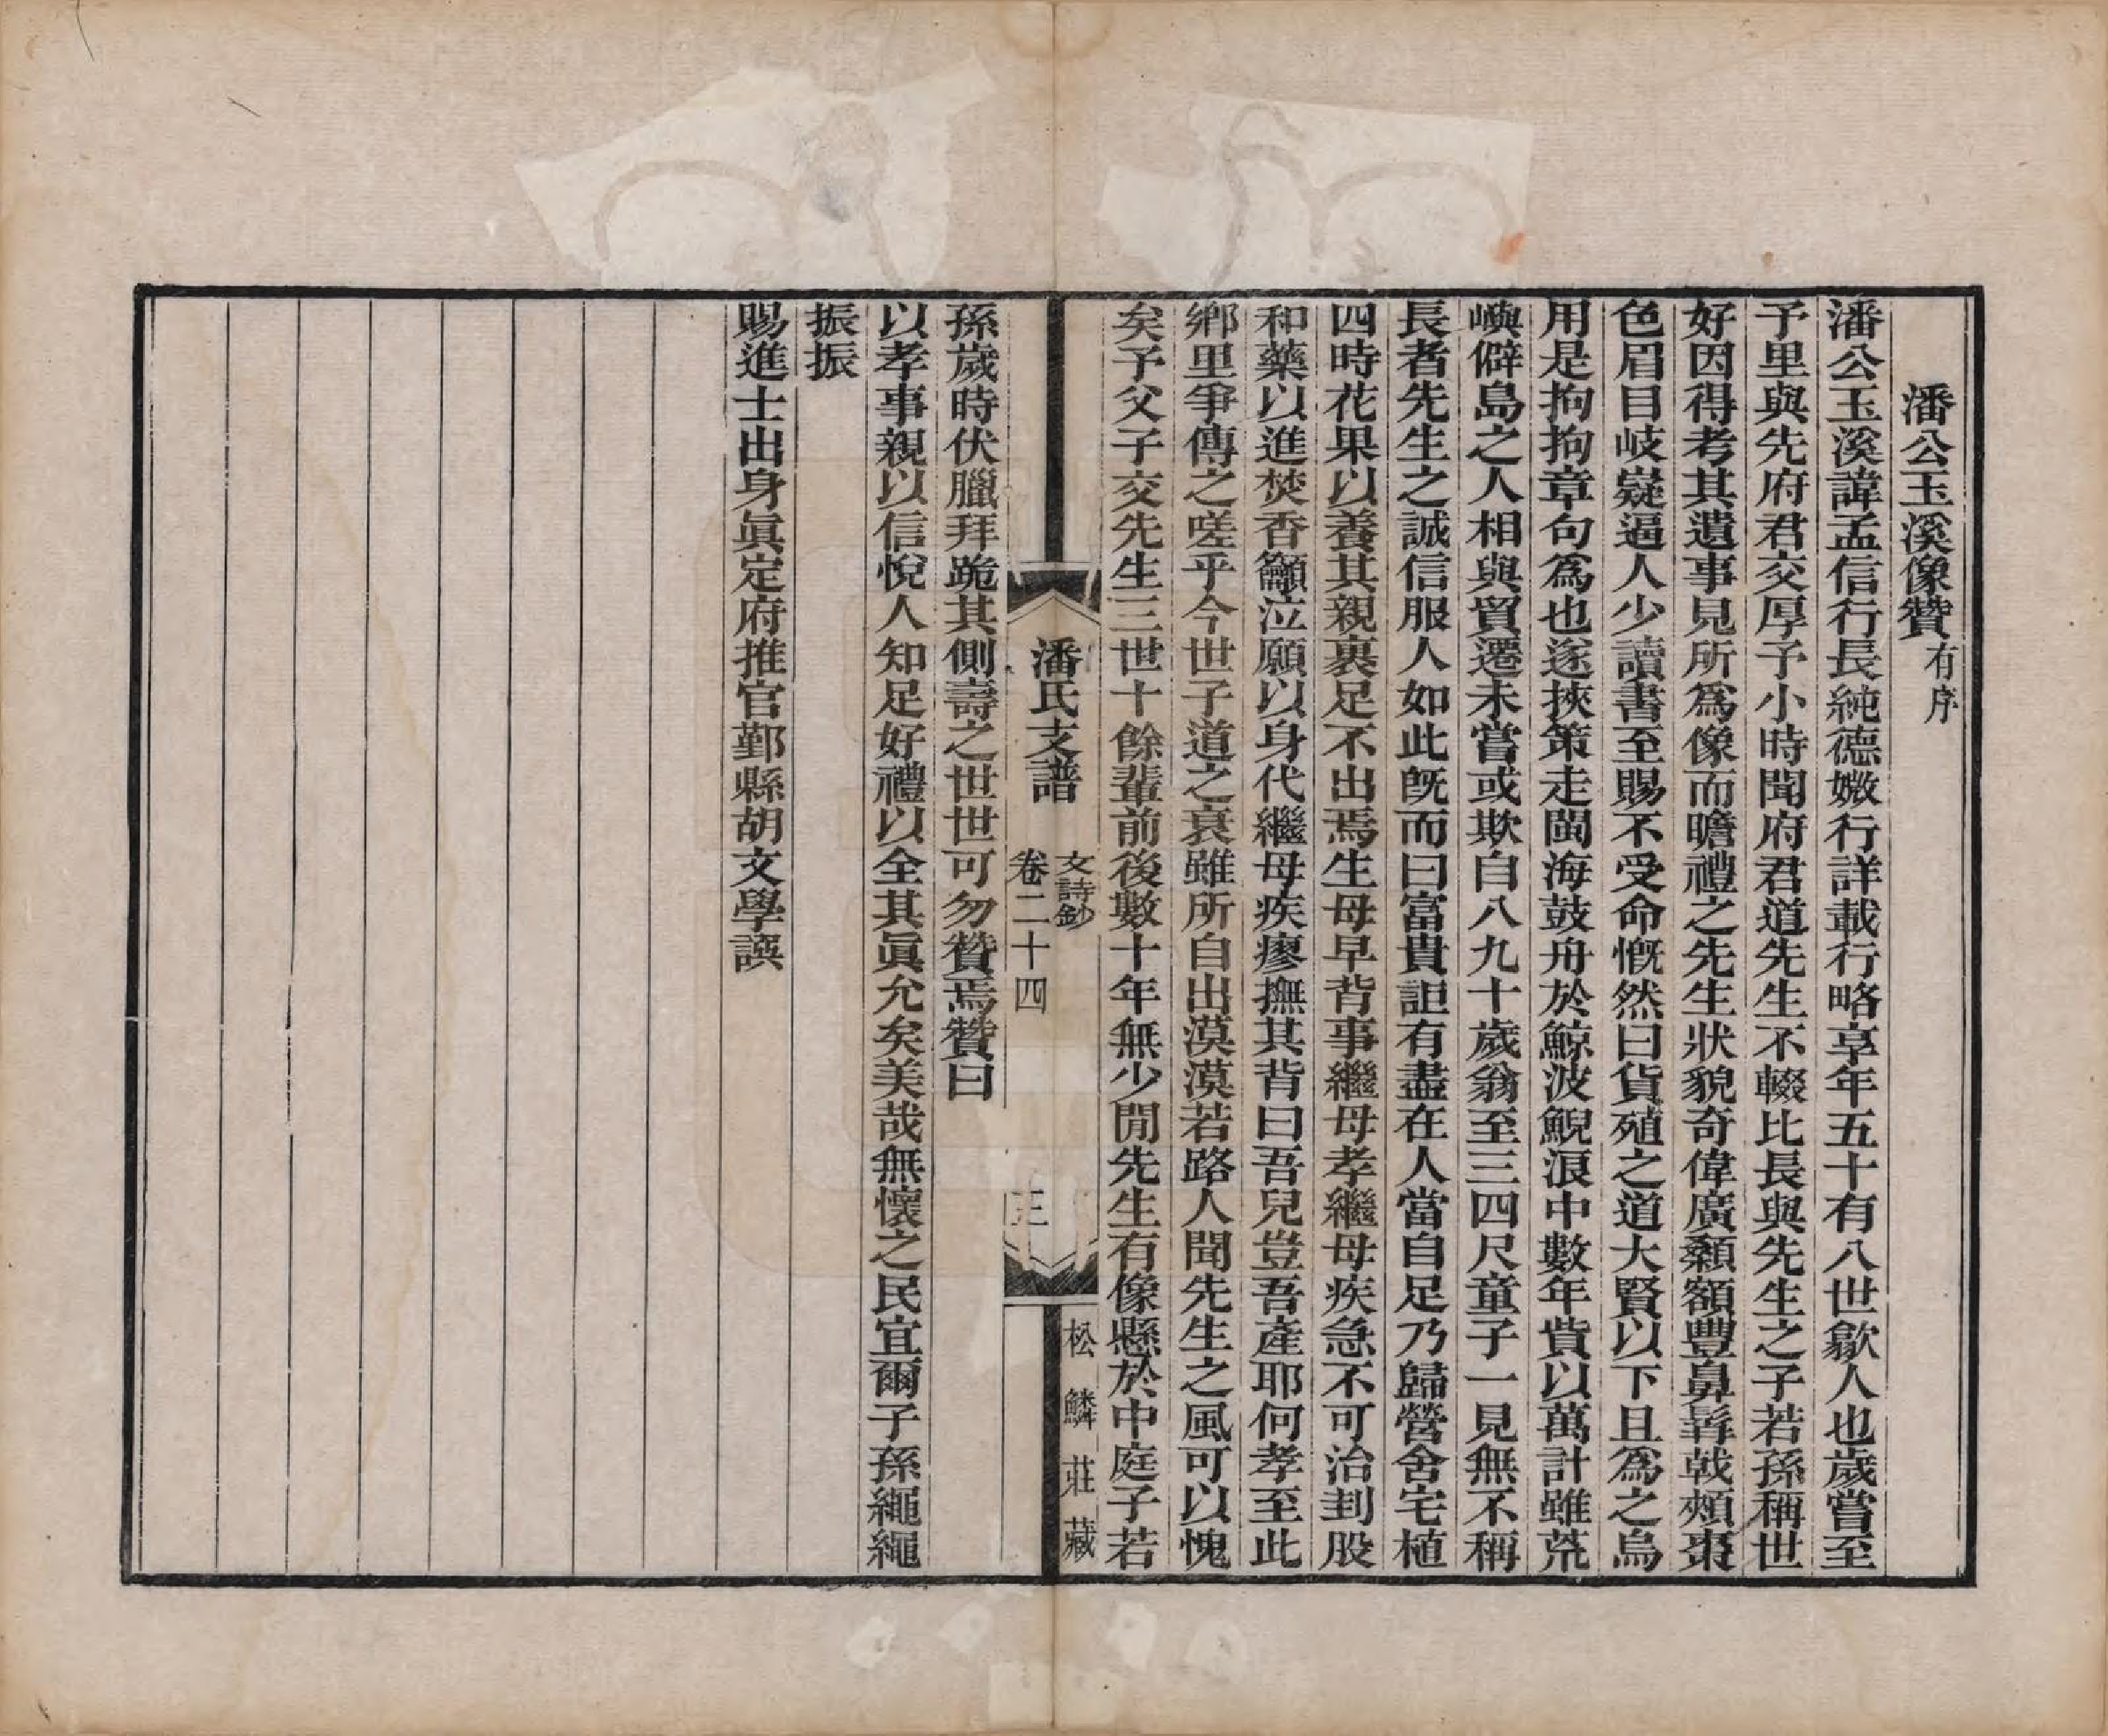 潘公玉溪像贊有序
潘公玉溪諱孟信行長純德媺行詳載行略享年五十有八世歙人也歲嘗至
予里與先府君交厚予小時聞府君道先生不輟比長與先生之子若孫稱世
好因得考其遺事見所爲像而瞻禮之先生狀貌奇偉廣顙額豐鼻髯戟頰棗
色眉目岐嶷逼人少讀書至賜不受命慨然曰貨殖之道大賢以下且爲之烏
用是拘拘章句爲也遂挾策走閩海鼓舟於鯨波鯢浪中數年貲以萬計雖荒
嶼僻島之人相與貿遷未嘗或欺自八九十歲翁至三四尺童子一見無不稱
長者先生之誠信服人如此旣而曰富貴詎有盡在人當自足乃歸營舍宅植
四時花果以養其親裹足不出焉生母早背事繼母孝繼母疾急不可治刲股
和藥以進焚香籲泣願以身代繼母疾瘳撫其背曰吾兒豈吾產耶何孝至此
鄉里爭傳之嗟乎今世子道之衰雖所自出漠漠若路人聞先生之風可以愧
矣予父子交先生三世十餘輩前後數十年無少閒先生有像懸於中庭子若
潘氏支譜
文詩鈔
卷二十四
三
松鱗莊藏
孫歲時伏臘拜跪其側壽之世世可勿贊焉贊曰
以孝事親以信悅人知足好禮以全其眞允矣美哉無懷之民宜爾子孫繩繩
振振
賜進士出身眞定府推官鄞縣胡文學譔